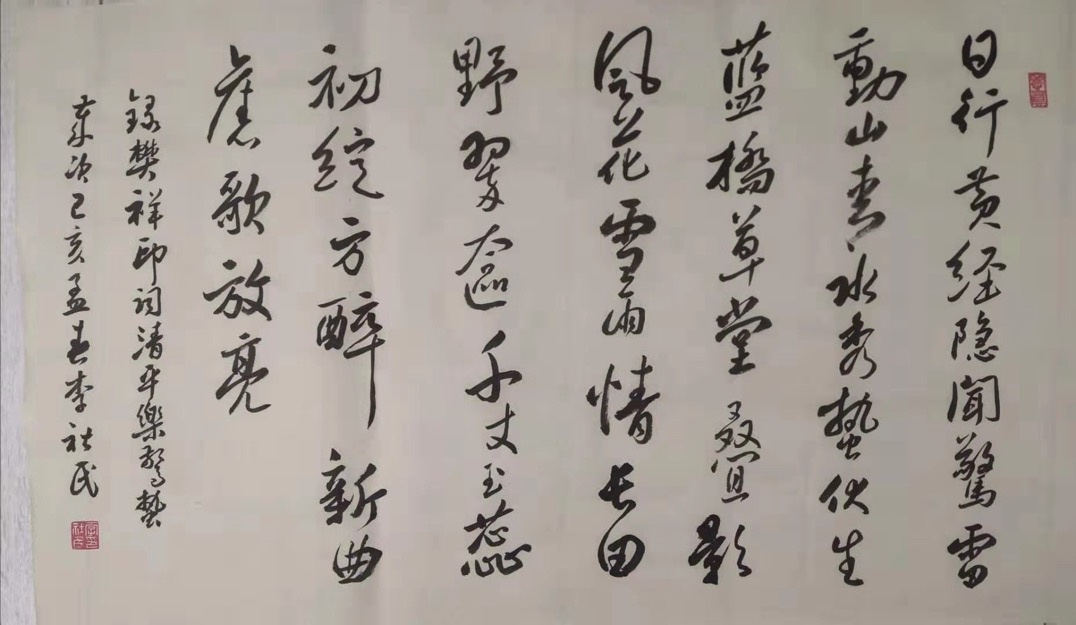 日行黄经隐闻驚雷
動山青水秀蛰伏生
蓝橋草堂叠影
風花雪雨情长田
野翠遮千丈玉蕊
初绽方醉新曲
舊歌放亮
録樊祥印词清平樂驚蛰
歲次己亥孟春李社民